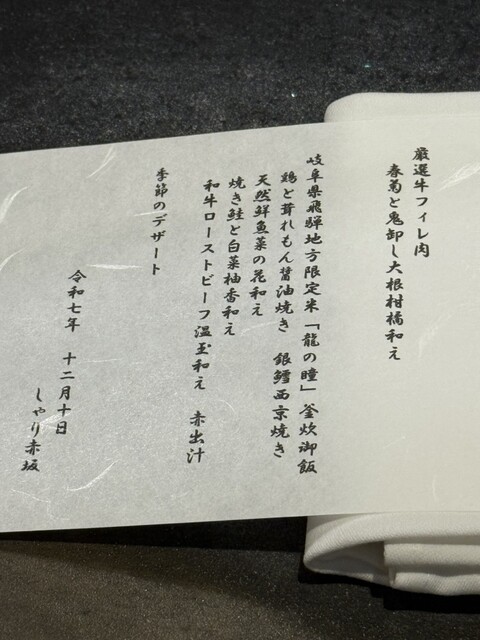 厳選牛フィレ肉
春菊と鬼卸し大根柑橘和え
岐阜県飛騨地方限定米「龍の瞳」釜炊御飯
鶏と茸れもん醤油焼き　銀鱈西京焼き
天然鮮魚菜の花和え
焼き鮭と白菜柚香和え
和牛ローストビーフ温玉和え　赤出汁
季節のデザート
令和七年　十二月十日
しゃり赤坂